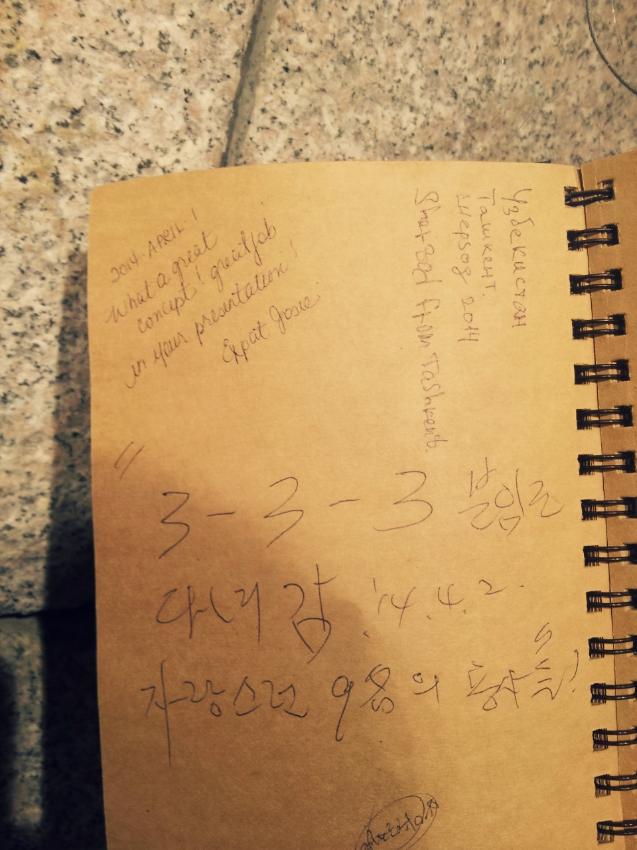 2014. APRIL!
What a great
concept! great job
in your presentation!
Expat Josie
Узбекистан
Ташкент.
Шерзод 2014
Sherzod from Tashkent.
"3-3-3
다녀감. '14. 4. 2.
자랑스런 9명의